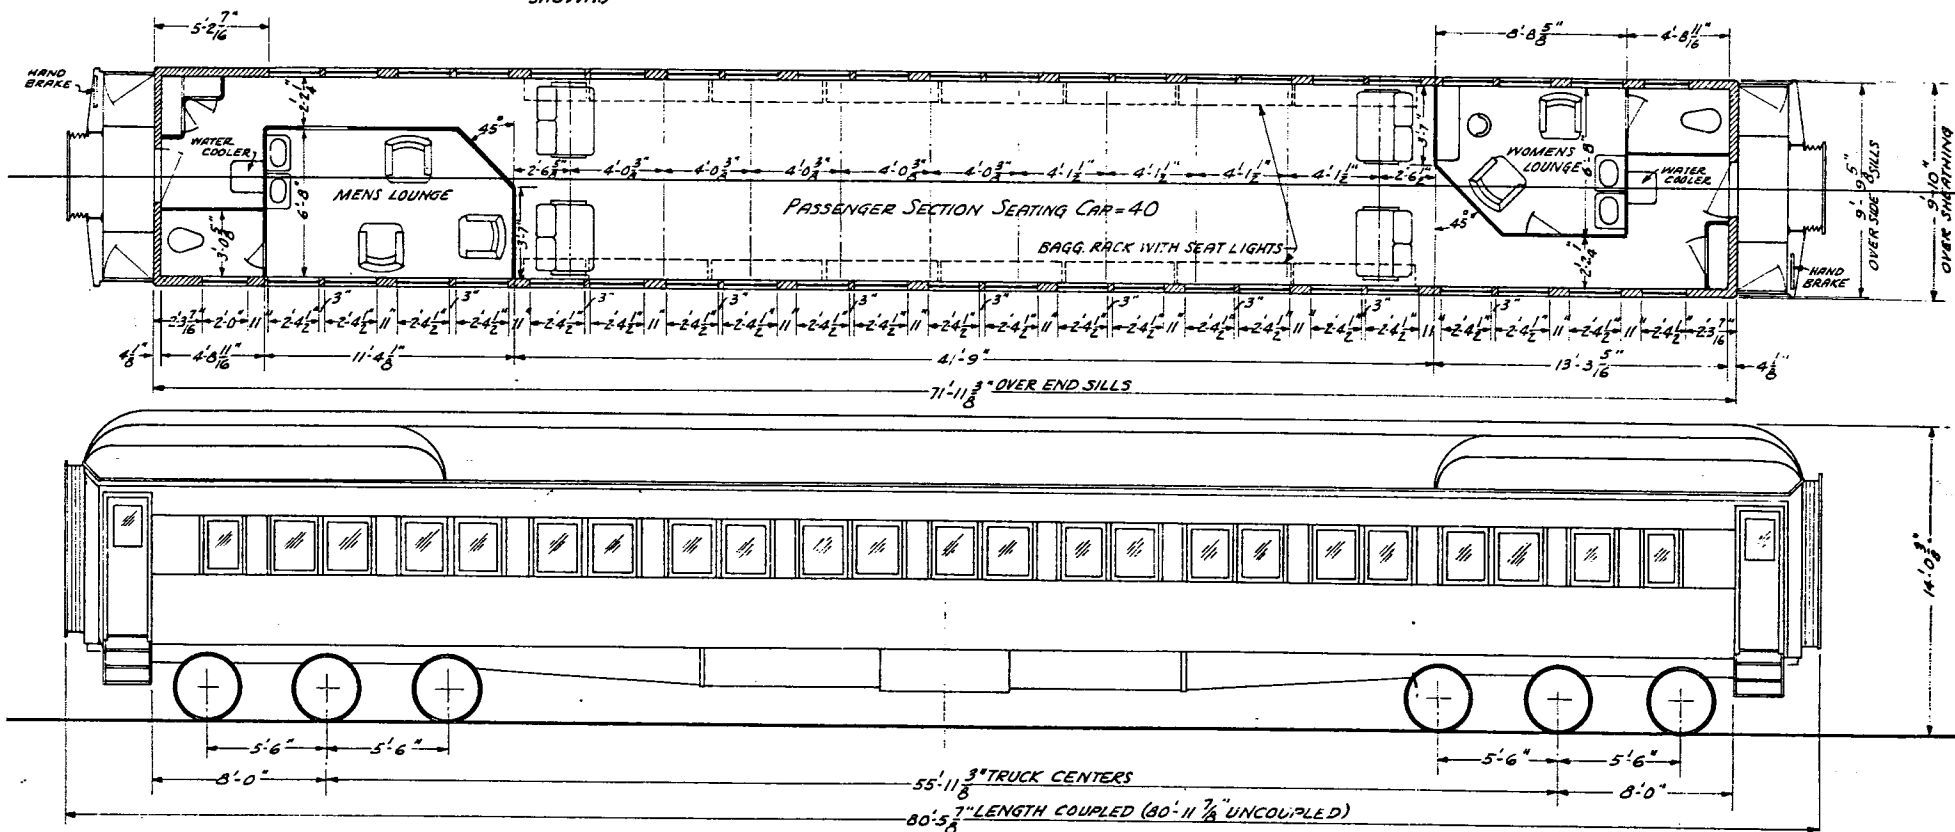 5'-2 7/16"
8'-8 5/8"
4'-8 11/16"
HAND
BRAKE
WATER
COOLER
2'-2 1/4"
45°
MENS LOUNGE
6'-8"
3'-0 5/8"
3'-7"
2'-6 5/8" 4'-0 3/8" 4'-0 3/8" 4'-0 3/8" 4'-0 3/8" 4'-0 3/8" 4'-1 1/2" 4'-1 1/2" 4'-1 1/2" 4'-1 1/2" 2'-6 1/2"
PASSENGER SECTION SEATING CAP=40
BAGG. RACK WITH SEAT LIGHTS
3'-7"
45°
WOMENS
LOUNGE
6'-8"
2'-2 1/4"
WATER
COOLER
HAND
BRAKE
9'-9 5/8"
OVER SIDE SILLS
9'-10"
OVER SHEATHING
3" 3" 3" 3" 3" 3" 3" 3" 3" 3"
2'-3 7/16" 2'-0" 11" 2'-4 1/2" 2'-4 1/2" 11" 2'-4 1/2" 2'-4 1/2" 11" 2'-4 1/2" 2'-4 1/2" 11" 2'-4 1/2" 2'-4 1/2" 11" 2'-4 1/2" 2'-4 1/2" 11" 2'-4 1/2" 2'-4 1/2" 11" 2'-4 1/2" 2'-4 1/2" 11" 2'-4 1/2" 2'-4 1/2" 11" 2'-4 1/2" 2'-4 1/2" 11" 2'-4 1/2" 11" 2'-4 1/2" 2'-3 7/16"
4 1/8" 4'-8 11/16" 11'-4 1/8" 41'-9" 13'-3 5/16" 4 1/8"
71'-11 3/8" OVER END SILLS
14'-0 3/8"
5'-6" 5'-6" 5'-6" 5'-6"
8'-0" 55'-11 3/8" TRUCK CENTERS 8'-0"
80'-5 7/8" LENGTH COUPLED (80'-11 7/8" UNCOUPLED)